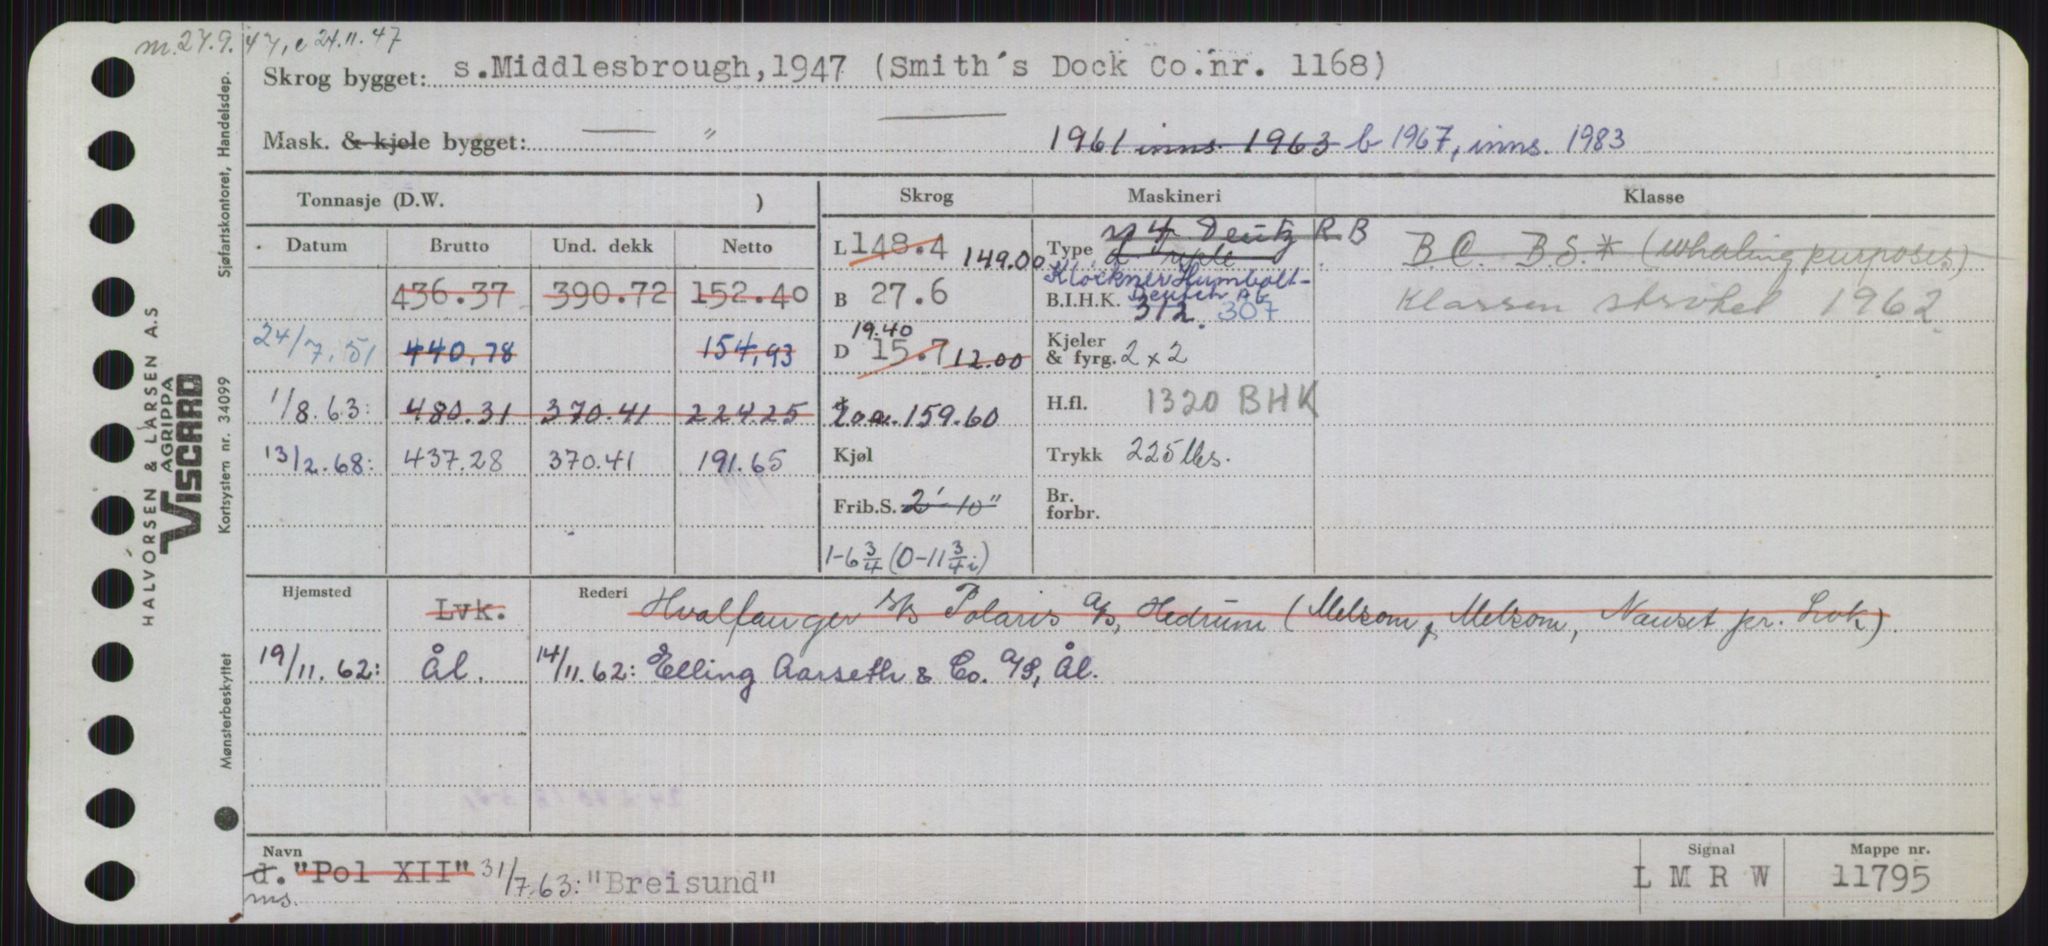 m. 27.9.47, e 24.11.47
Skrog bygget: s.Middlesbrough,1947 (Smith's Dock Co.nr. 1168)
Mask. & kjele bygget: — " — 1961 inns. 1963 b 1967, inns. 1983
Tonnasje (D.W. ) Skrog Maskineri Klasse
Datum Brutto Und. dekk Netto
L 148.4 149.00 Type 4 Deutz R B
B.C. B.S.* (whaling purposes)
436.37 390.72 152.40
B 27.6
Klöckner Humbolt-
Deutsch AG
B.I.H.K. 312. 307
Klassen strøket 1962
24/7.51 440,78 154,93
D 19.40 15.7 12.00
Kjeler & fyrg. 2 x 2
1/8.63: 480.31 370.41 224.25
Loa. 159.60
H.fl. 1320 BHK
13/2.68: 437.28 370.41 191.65
Kjøl
Trykk 225 lbs.
Frib.S. 2'-10"
Br. forbr.
1-6 3/4 (0-11 3/4 i)
Hjemsted Lvk. Rederi Hvalfanger s/s Polaris a/s, Hedrum (Melsom & Melsom, Nanset pr. Lvk)
19/11.62: Ål. 14/11.62: Elling Aarseth & Co. A/S, Ål.
Navn
d. "Pol XII" 31/7.63: "Breisund"
ms.
Signal
L M R W
Mappe nr.
11795
Sjøfartskontoret, Handelsdep.
Kortsystem nr. 34099
Mønsterbeskyttet
HALVORSEN & LARSEN A.S
AGRIPPA
VISCARD